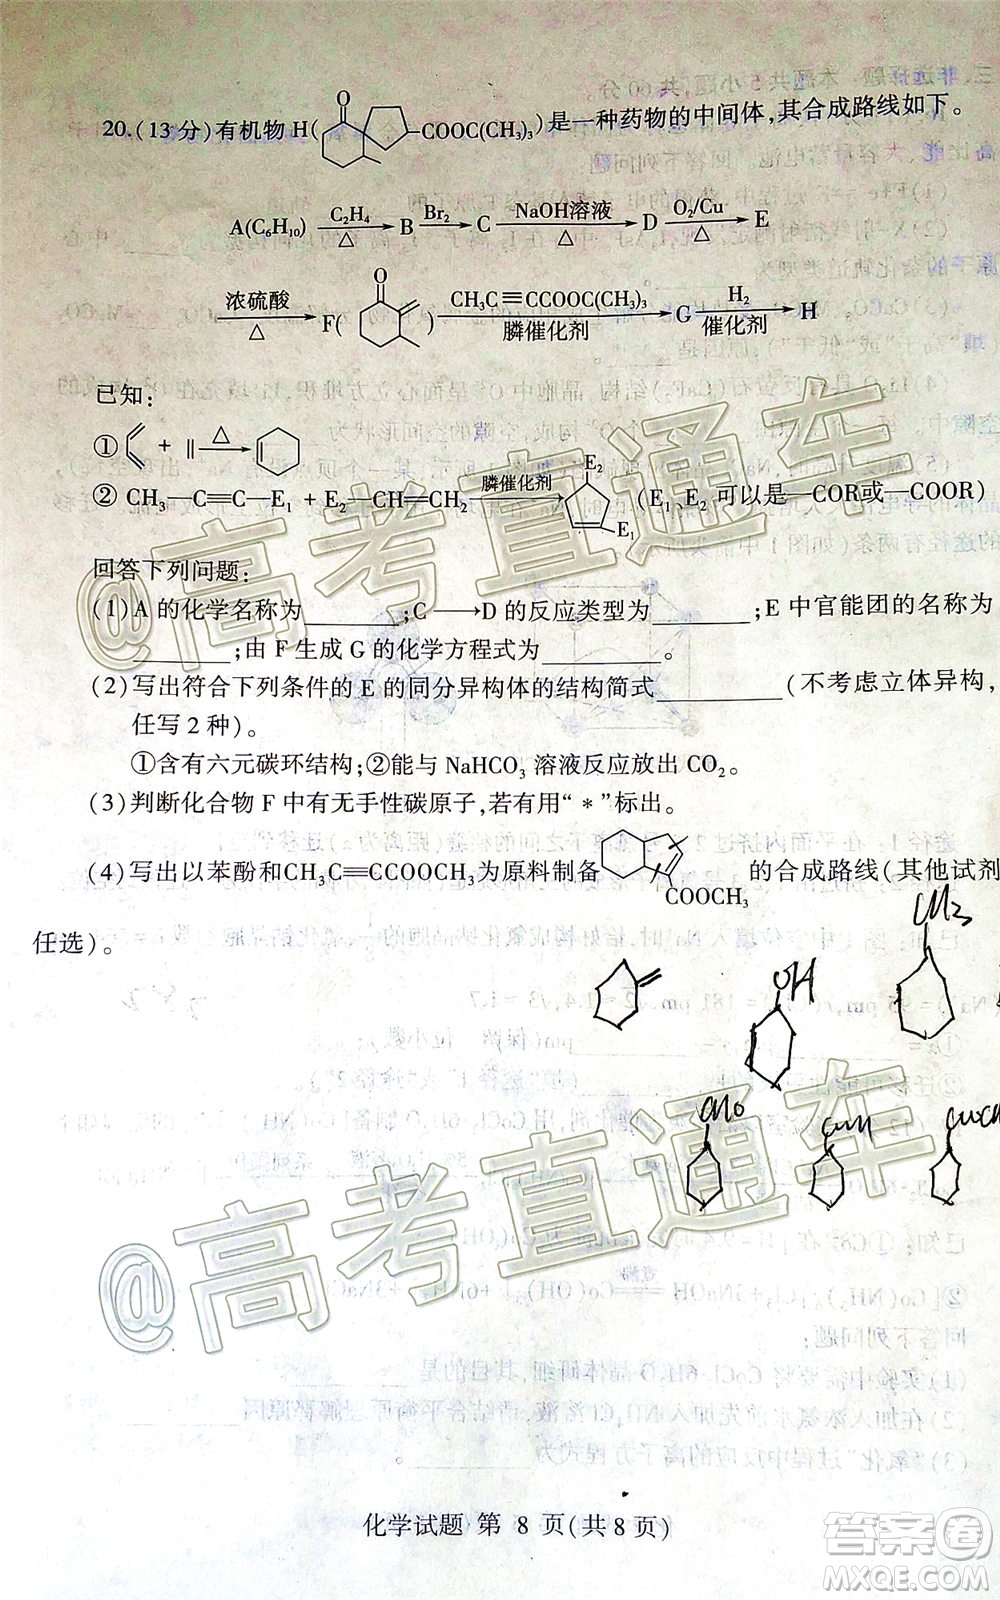 20.(13分)有机物H( O COOC(CH₃)₃)是一种药物的中间体,其合成路线如下。
A(C₆H₁₀) C₂H₄ △ B Br₂ C NaOH溶液 △ D O₂/Cu △ E
浓硫酸 △ F( O ) CH₃C≡CCOOC(CH₃)₃ 膦催化剂 G H₂ 催化剂 H
已知:
① + ‖ △
② CH₃—C≡C—E₁ + E₂—CH=CH₂ 膦催化剂 E₂ E₁ (E₁、E₂ 可以是—COR或—COOR)
回答下列问题:
(1)A 的化学名称为______;C⟶D 的反应类型为______;E 中官能团的名称为
______;由 F 生成 G 的化学方程式为______。
(2)写出符合下列条件的 E 的同分异构体的结构简式______(不考虑立体异构,
任写 2 种)。
①含有六元碳环结构;②能与 NaHCO₃ 溶液反应放出 CO₂。
(3)判断化合物 F 中有无手性碳原子,若有用“*”标出。
(4)写出以苯酚和CH₃C≡CCOOCH₃为原料制备 COOCH₃ 的合成路线(其他试剂
任选)。
CH₃
OH
CHO
@高考直通车
@高考直通车
化学试题 第 8 页(共8页)
答案圈
MXQE.COM